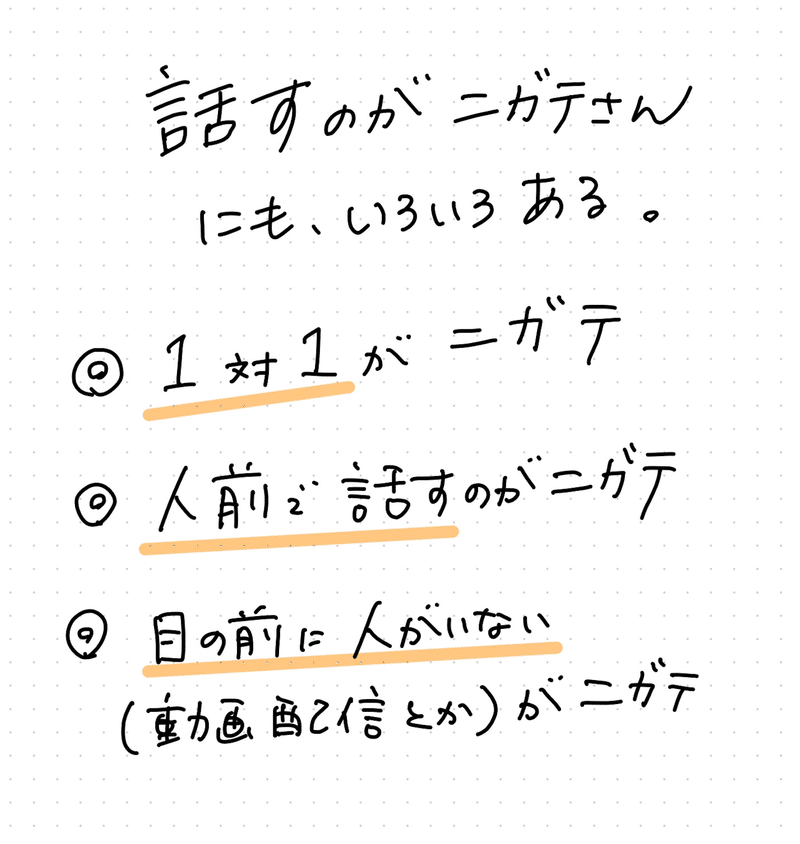 話すのがニガテさん
にも、いろいろある。
◎ 1対1がニガテ
◎ 人前で話すのがニガテ
◎ 目の前に人がいない
(動画配信とか)がニガテ